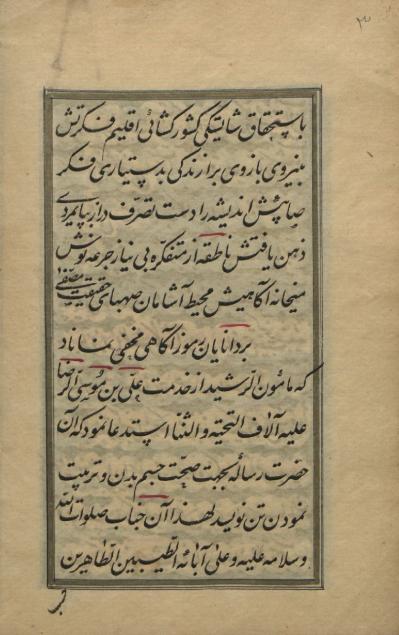 ۳
باستحقاق شایستگی کشور کشائی اقلیم فکرتش
بنیروی بازوی برازندگی بدستیاری فکر
صائبش اندیشه را دست تصرف دراز بپایمردی
ذهن یافتش ناطقه از متفکره بی نیاز جرعه نوش
میخانه آگاهیش محیط آشامان صهبای حقیقت
بر دانایان رموز آگاهی مخفی نماناد
که مامون الرشید از خدمت علی بن موسی الرضا
علیه آلاف التحیته والثنا استدعا نمود که آن
حضرت رساله بجهت صحت جسم بدن و تربیت
نمودن تن نویسد لهذا آن جناب صلوات الله
وسلامه علیه و علی آبائه الطیبین الطاهرین